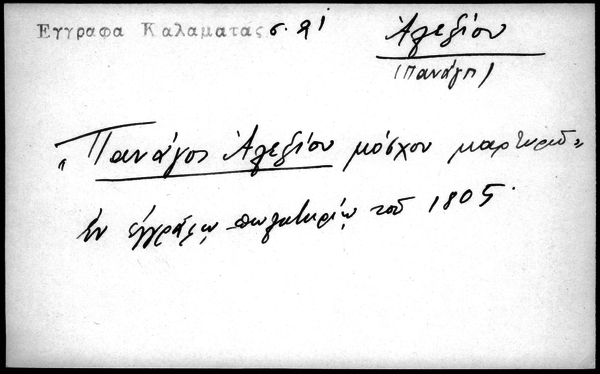 Εγγραφα Καλαματας σ. 91
Ἀλεξίου
(Πανάγη)
"Πανάγος Ἀλεξίου μόσχου μαρτυρῶ"
Ἐν ἐγγράφῳ πωλητηρίῳ τοῦ 1805.